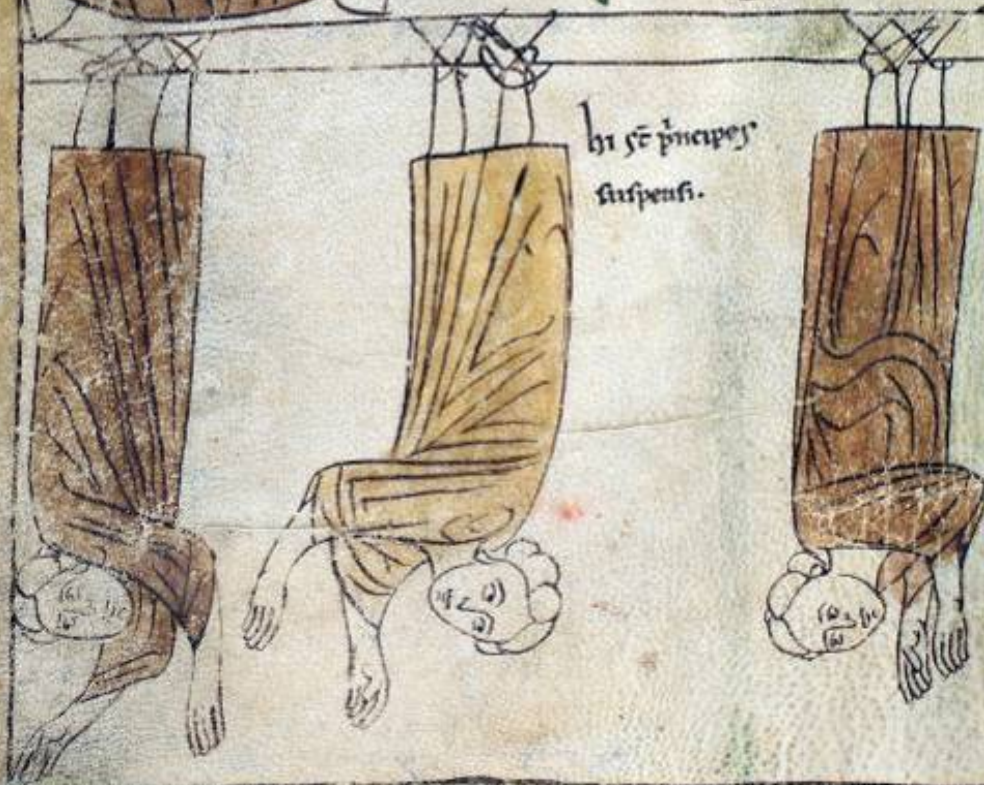 hi st̄ pͥncipes
suspensi.